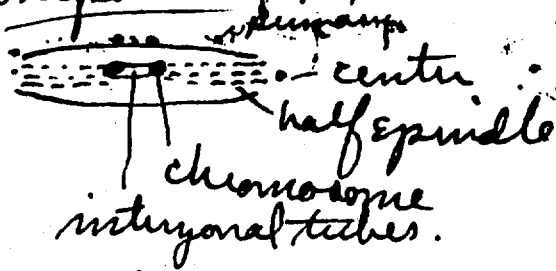 center
half spindle
chromosome
interzonal tubes.